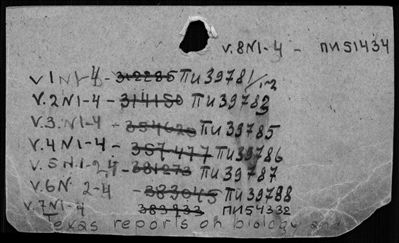 v.8N1-4 - пи51434
v1N1-4 - 312285 Пи39781/1-2
v.2N1-4 - 314150 Пи39783
v.3.N1-4 - 354628 Пи39785
v.4N1-4 - 367477 Пи39786
v.5N1-24 - 381273 Пи39787
v.6N 2-4 - 383045 Пи39788
v.7N1-4 383933 пи54332
Texas reports on biology and